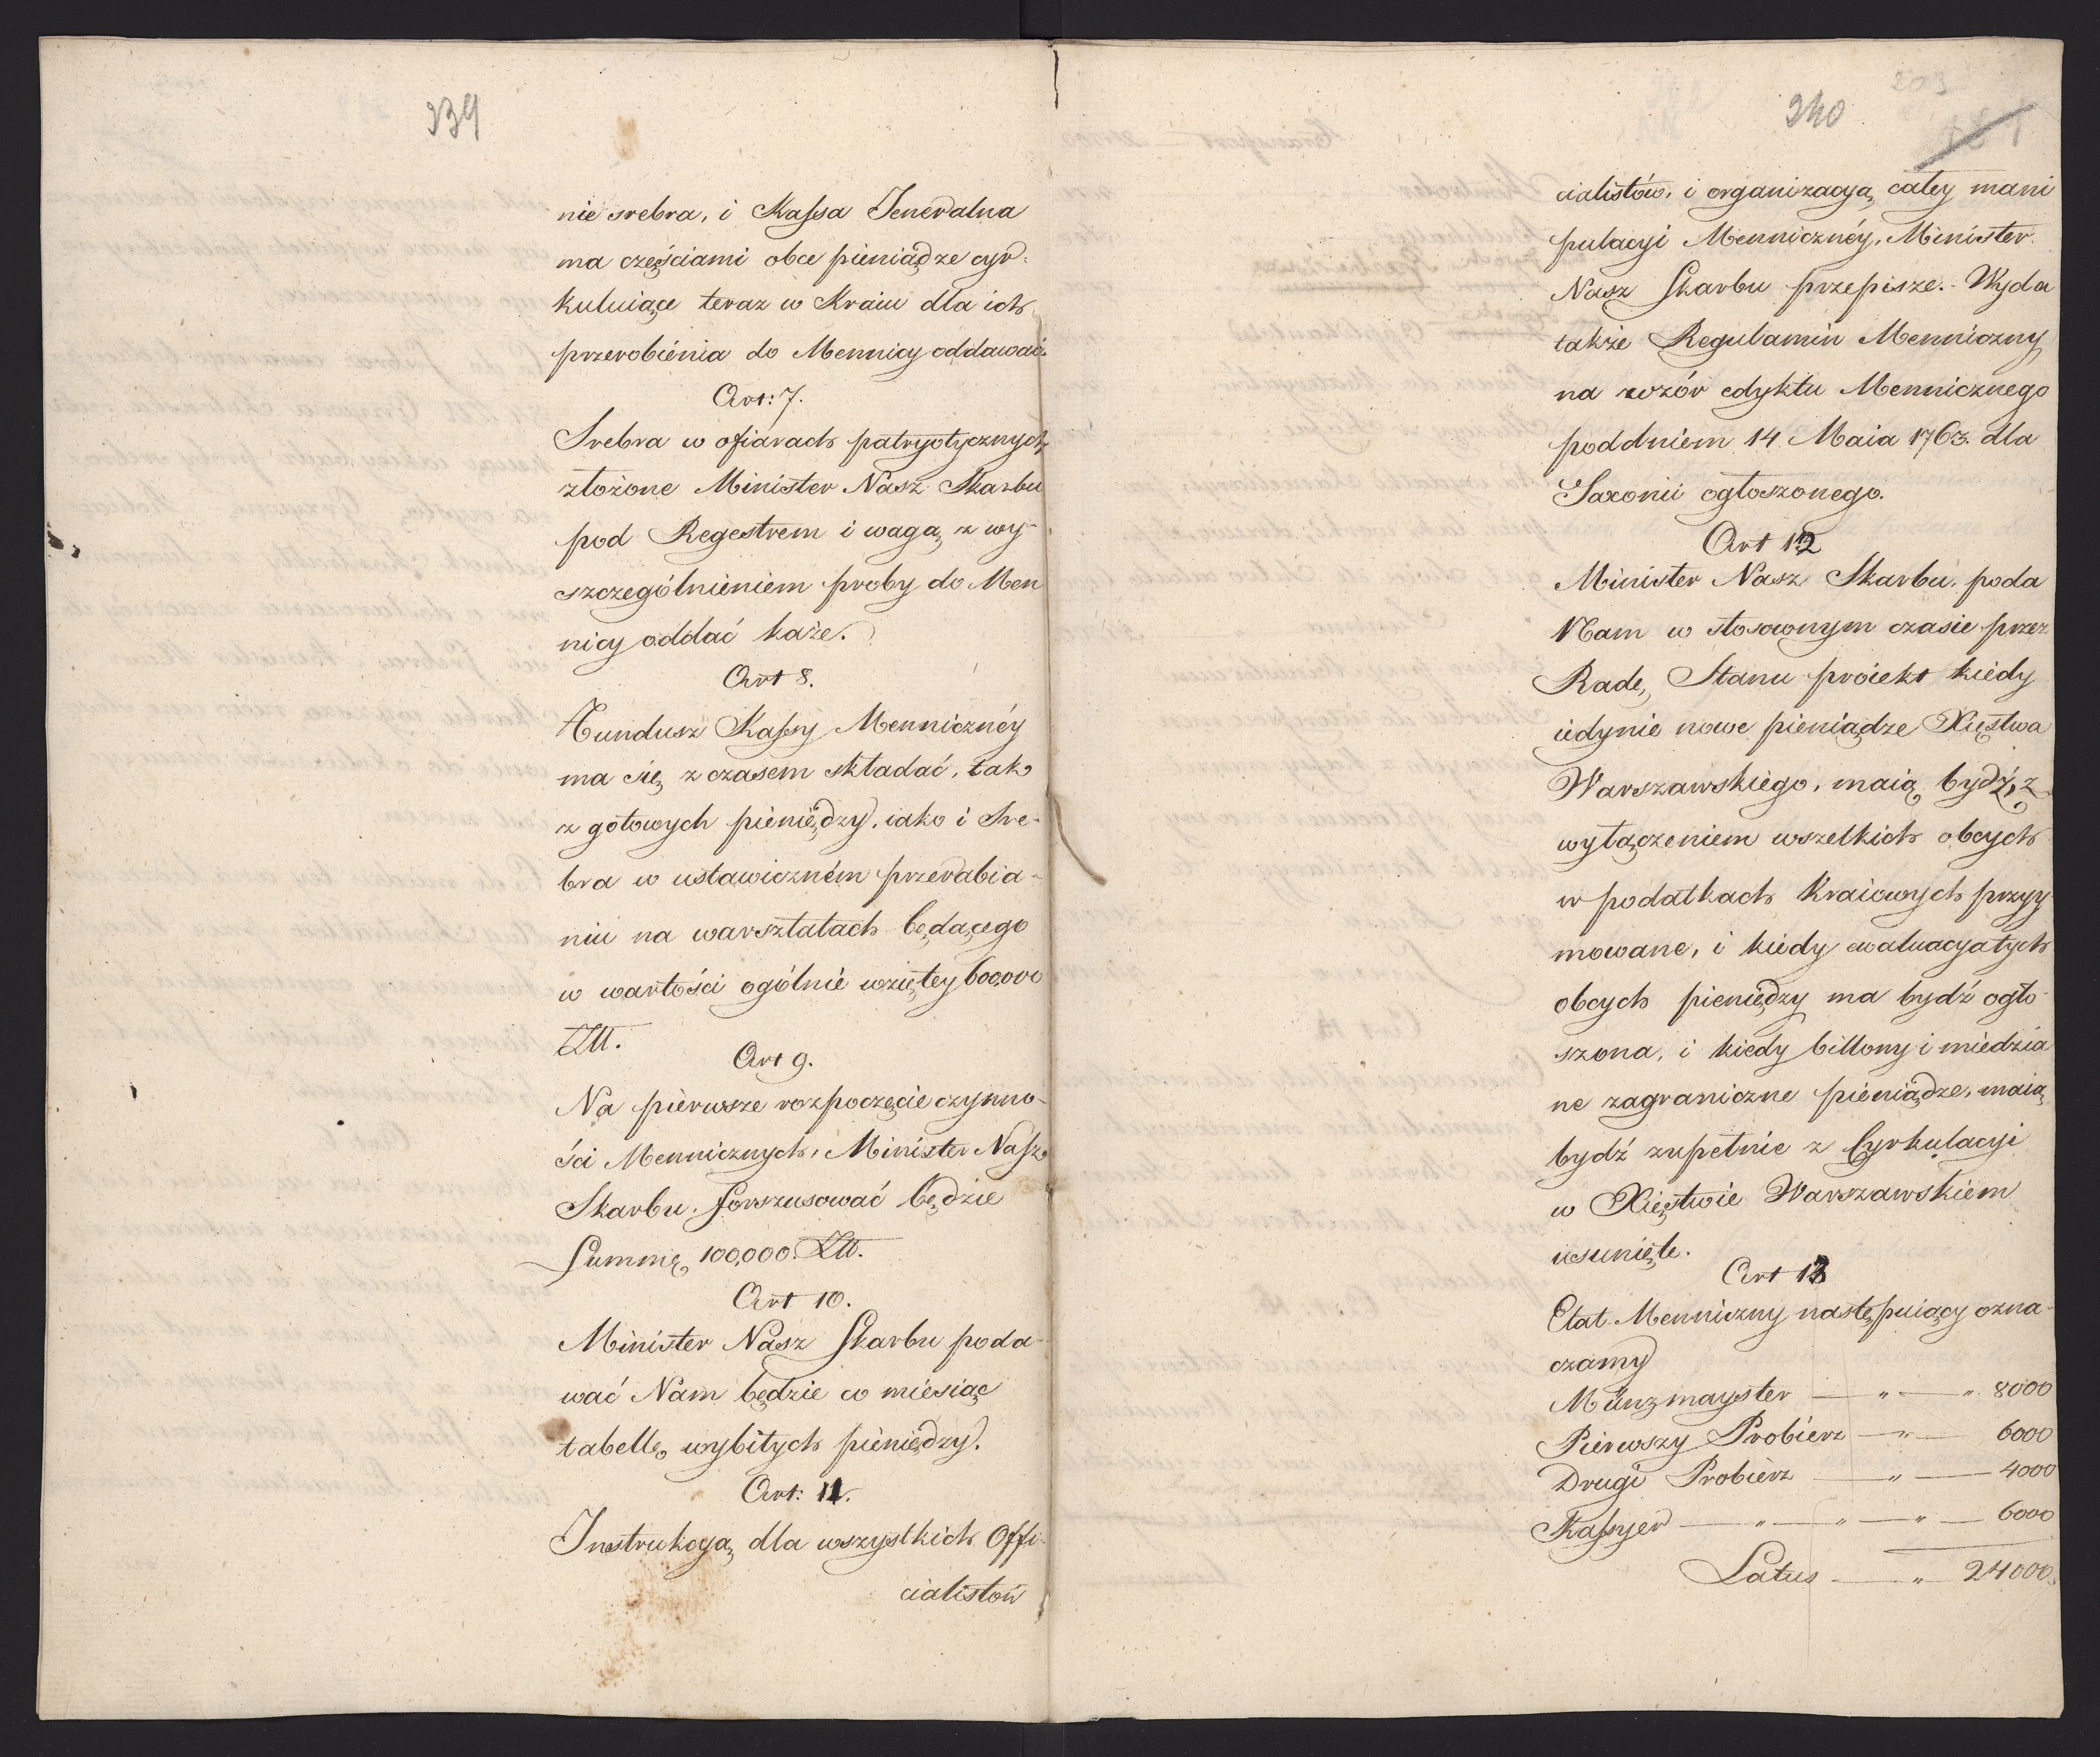 339
nie srebra, i Kassa Jeneralna
ma częściami obce pieniądze cyr-
kuluiące teraz w Kraiu dla ich
przerobienia do Mennicy oddawać.
Art: 7.
Srebra w ofiarach patryotycznych
złożone Minister Nasz Skarbu
pod Regestrem i wagą z wy-
szczególnieniem proby do Men
nicy oddać każe.
Art 8.
Fundusz Kassy Menniczney
ma się z czasem składać, tak
z gotowych pieniędzy, iako i Sre-
bra w ustawiczném przerabia-
niu na warsztatach będącego
w wartości ogólnie wziętey 600,000
Złł.
Art 9.
Na pierwsze rozpoczęcie czynno-
ści Mennicznych, Minister Nasz
Skarbu forszusować będzie
Summę 100,000. Złł.
Art 10.
Minister Nasz Skarbu poda-
wać Nam będzie co miesiąc
tabellę wybitych pieniędzy.
Art: 11.
Instrukcyą dla wszystkich Offi-
cialistów
203
340
cialistów, i organizacyą całey mani
pulacyi Mennicznéy, Minister
Nasz Skarbu przepisze. - Wyda
także Regulamin Menniczny
na wzór edyktu Mennicznego
pod dniem 14 Maia 1763. dla
Saxonii ogłoszonego.
Art 12
Minister Nasz Skarbu poda
Nam w stosownym czasie przez
Radę Stanu proiekt kiedy
iedynie nowe pieniądze Xięstwa
Warszawskiego, maią bydź, z
wyłączeniem wszelkich obcych
w podatkach Kraiowych przyy
mowane, i kiedy ewaluacya tych
obcych pieniędzy ma bydź ogło-
szona, i kiedy billony i miedzia
ne zagraniczne pieniądze, maią
bydź zupełnie z Cyrkulacyi
w Xięstwie Warszawskiem
usunięte.
Art 13
Etat Menniczny następuiący ozna-
czamy
Münzmayster — " — " 8000
Pierwszy Probierz — " — 6000
Drugi Probierz — " — 4000
Kassyer — " — " — " — 6000
Latus — " 24000.